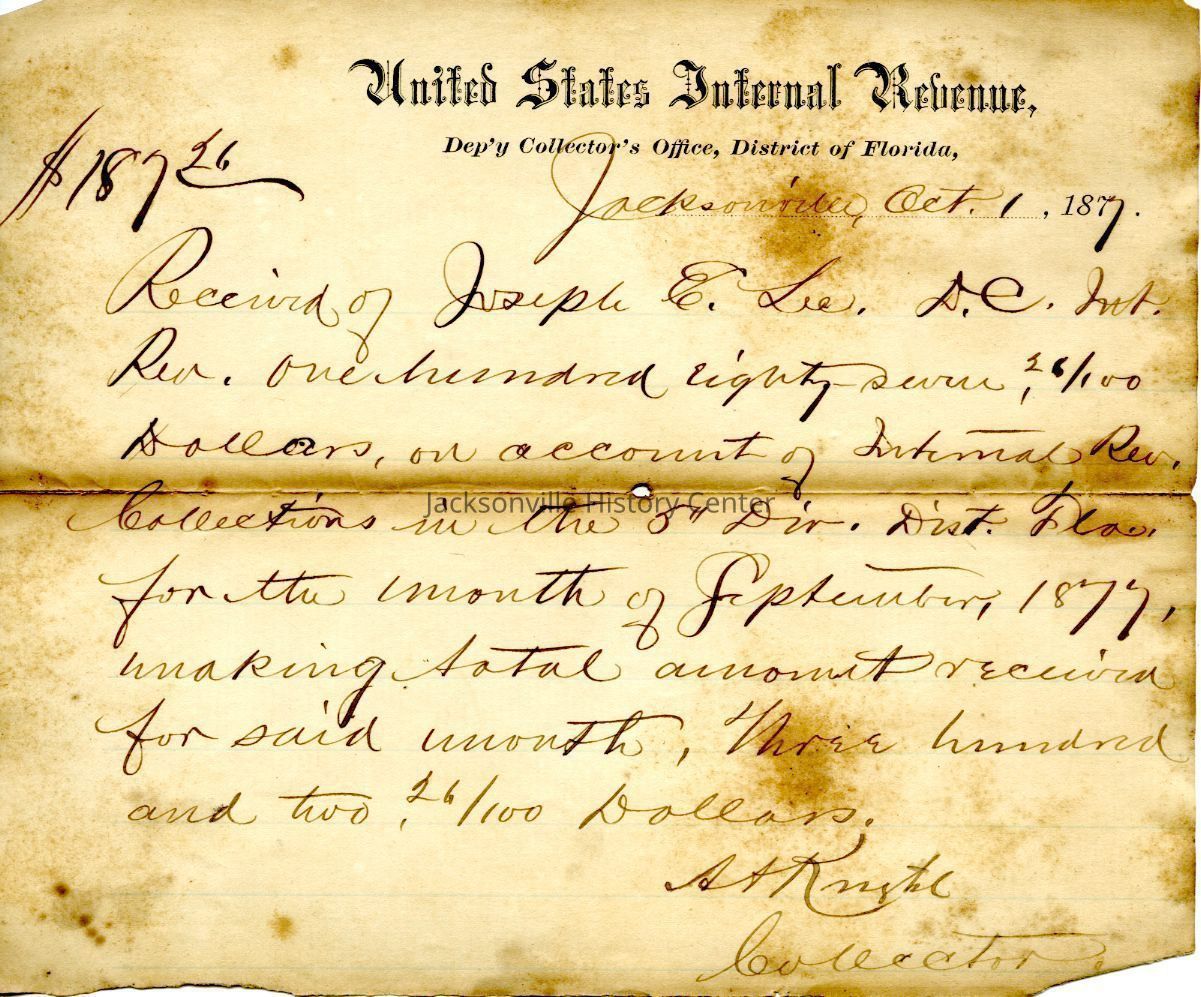 United States Internal Revenue,
Dep'y Collector's Office, District of Florida,
$187 26
Jacksonville, Oct. 1, 1877.
Received of Joseph E. Lee. D.C. Int.
Rev. One hundred eighty-seven, 26/100
Dollars, on account of Internal Rev.
Jacksonville History Center
Collections in the 3d Div. Dist. Fla.
for the month of September, 1877,
making total amount received
for said month, Three hundred
and two, 26/100 Dollars.
A A Knight
Collector.